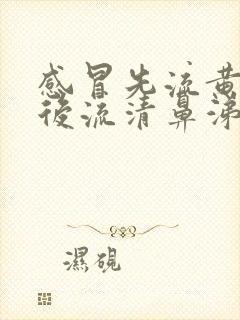 感冒先流黄
後流清鼻涕
濕硯